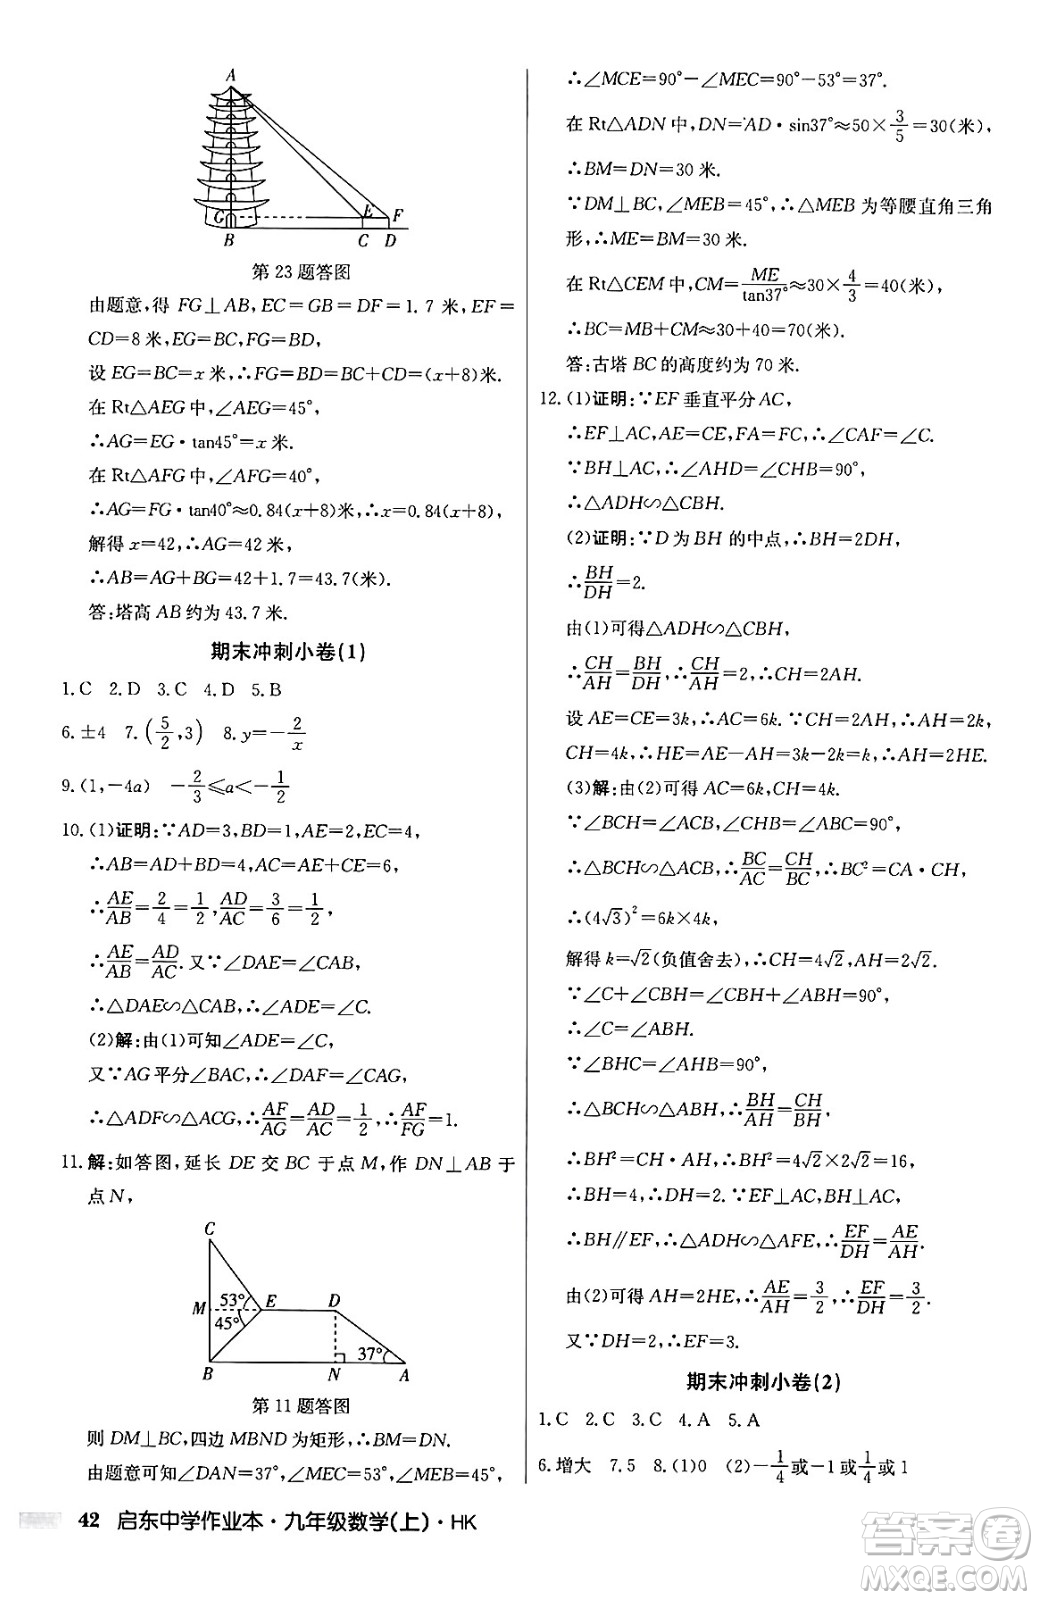 A
G
E
F
B
C
D
第 23 题答图
由题意,得 FG⊥AB,EC=GB=DF=1.7 米,EF=
CD=8 米,∴EG=BC,FG=BD,
设 EG=BC=x 米,∴FG=BD=BC+CD=(x+8)米.
在 Rt△AEG 中,∠AEG=45°,
∴AG=EG·tan45°=x 米.
在 Rt△AFG 中,∠AFG=40°,
∴AG=FG·tan40°≈0.84(x+8)米,∴x=0.84(x+8),
解得 x=42,∴AG=42 米,
∴AB=AG+BG=42+1.7=43.7(米).
答:塔高 AB 约为 43.7 米.
期末冲刺小卷(1)
1.C 2.D 3.C 4.D 5.B
6.±4 7.(5/2,3) 8.y=-2/x
9.(1,-4a) -2/3≤a<-1/2
10.(1)证明:∵AD=3,BD=1,AE=2,EC=4,
∴AB=AD+BD=4,AC=AE+CE=6,
∴AE/AB=2/4=1/2,AD/AC=3/6=1/2,
∴AE/AB=AD/AC.又∵∠DAE=∠CAB,
∴△DAE∽△CAB,∴∠ADE=∠C.
(2)解:由(1)可知∠ADE=∠C,
又∵AG平分∠BAC,∴∠DAF=∠CAG,
∴△ADF∽△ACG,∴AF/AG=AD/AC=1/2,∴AF/FG=1.
11.解:如答图,延长 DE 交 BC 于点 M,作 DN⊥AB 于
点 N,
C
M
53°
E
D
45°
37°
B
N
A
第 11 题答图
则 DM⊥BC,四边 MBND 为矩形,∴BM=DN.
由题意可知∠DAN=37°,∠MEC=53°,∠MEB=45°,
∴∠MCE=90°-∠MEC=90°-53°=37°.
在 Rt△ADN 中,DN=AD·sin37°≈50×3/5=30(米),
∴BM=DN=30 米.
∵DM⊥BC,∠MEB=45°,∴△MEB 为等腰直角三角
形,∴ME=BM=30 米.
在 Rt△CEM 中,CM=ME/tan37°≈30×4/3=40(米),
∴BC=MB+CM≈30+40=70(米).
答:古塔 BC 的高度约为 70 米.
12.(1)证明:∵EF 垂直平分 AC,
∴EF⊥AC,AE=CE,FA=FC,∴∠CAF=∠C.
∵BH⊥AC,∴∠AHD=∠CHB=90°,
∴△ADH∽△CBH.
(2)证明:∵D 为 BH 的中点,∴BH=2DH,
∴BH/DH=2.
由(1)可得△ADH∽△CBH,
∴CH/AH=BH/DH,∴CH/AH=2,∴CH=2AH.
设 AE=CE=3k,∴AC=6k.∵CH=2AH,∴AH=2k,
CH=4k,∴HE=AE-AH=3k-2k=k,∴AH=2HE.
(3)解:由(2)可得 AC=6k,CH=4k.
∵∠BCH=∠ACB,∠BHC=∠ABC=90°,
∴△BCH∽△ACB,∴BC/AC=CH/BC,∴BC²=CA·CH,
∴(4√3)²=6k×4k,
解得 k=√2(负值舍去),∴CH=4√2,AH=2√2.
∵∠C+∠CBH=∠CBH+∠ABH=90°,
∴∠C=∠ABH.
∵∠BHC=∠AHB=90°,
∴△BCH∽△ABH,∴BH/AH=CH/BH,
∴BH²=CH·AH,∴BH²=4√2×2√2=16,
∴BH=4,∴DH=2.∵EF⊥AC,BH⊥AC,
∴BH∥EF,∴△ADH∽△AFE,∴EF/DH=AE/AH.
由(2)可得 AH=2HE,∴AE/AH=3/2,∴EF/DH=3/2.
又∵DH=2,∴EF=3.
期末冲刺小卷(2)
1.C 2.C 3.C 4.A 5.A
6.增大 7.5 8.(1)0 (2)-1/4或-1或1/4或1
42 启东中学作业本·九年级数学(上)·HK
答案圈
MXQE.COM